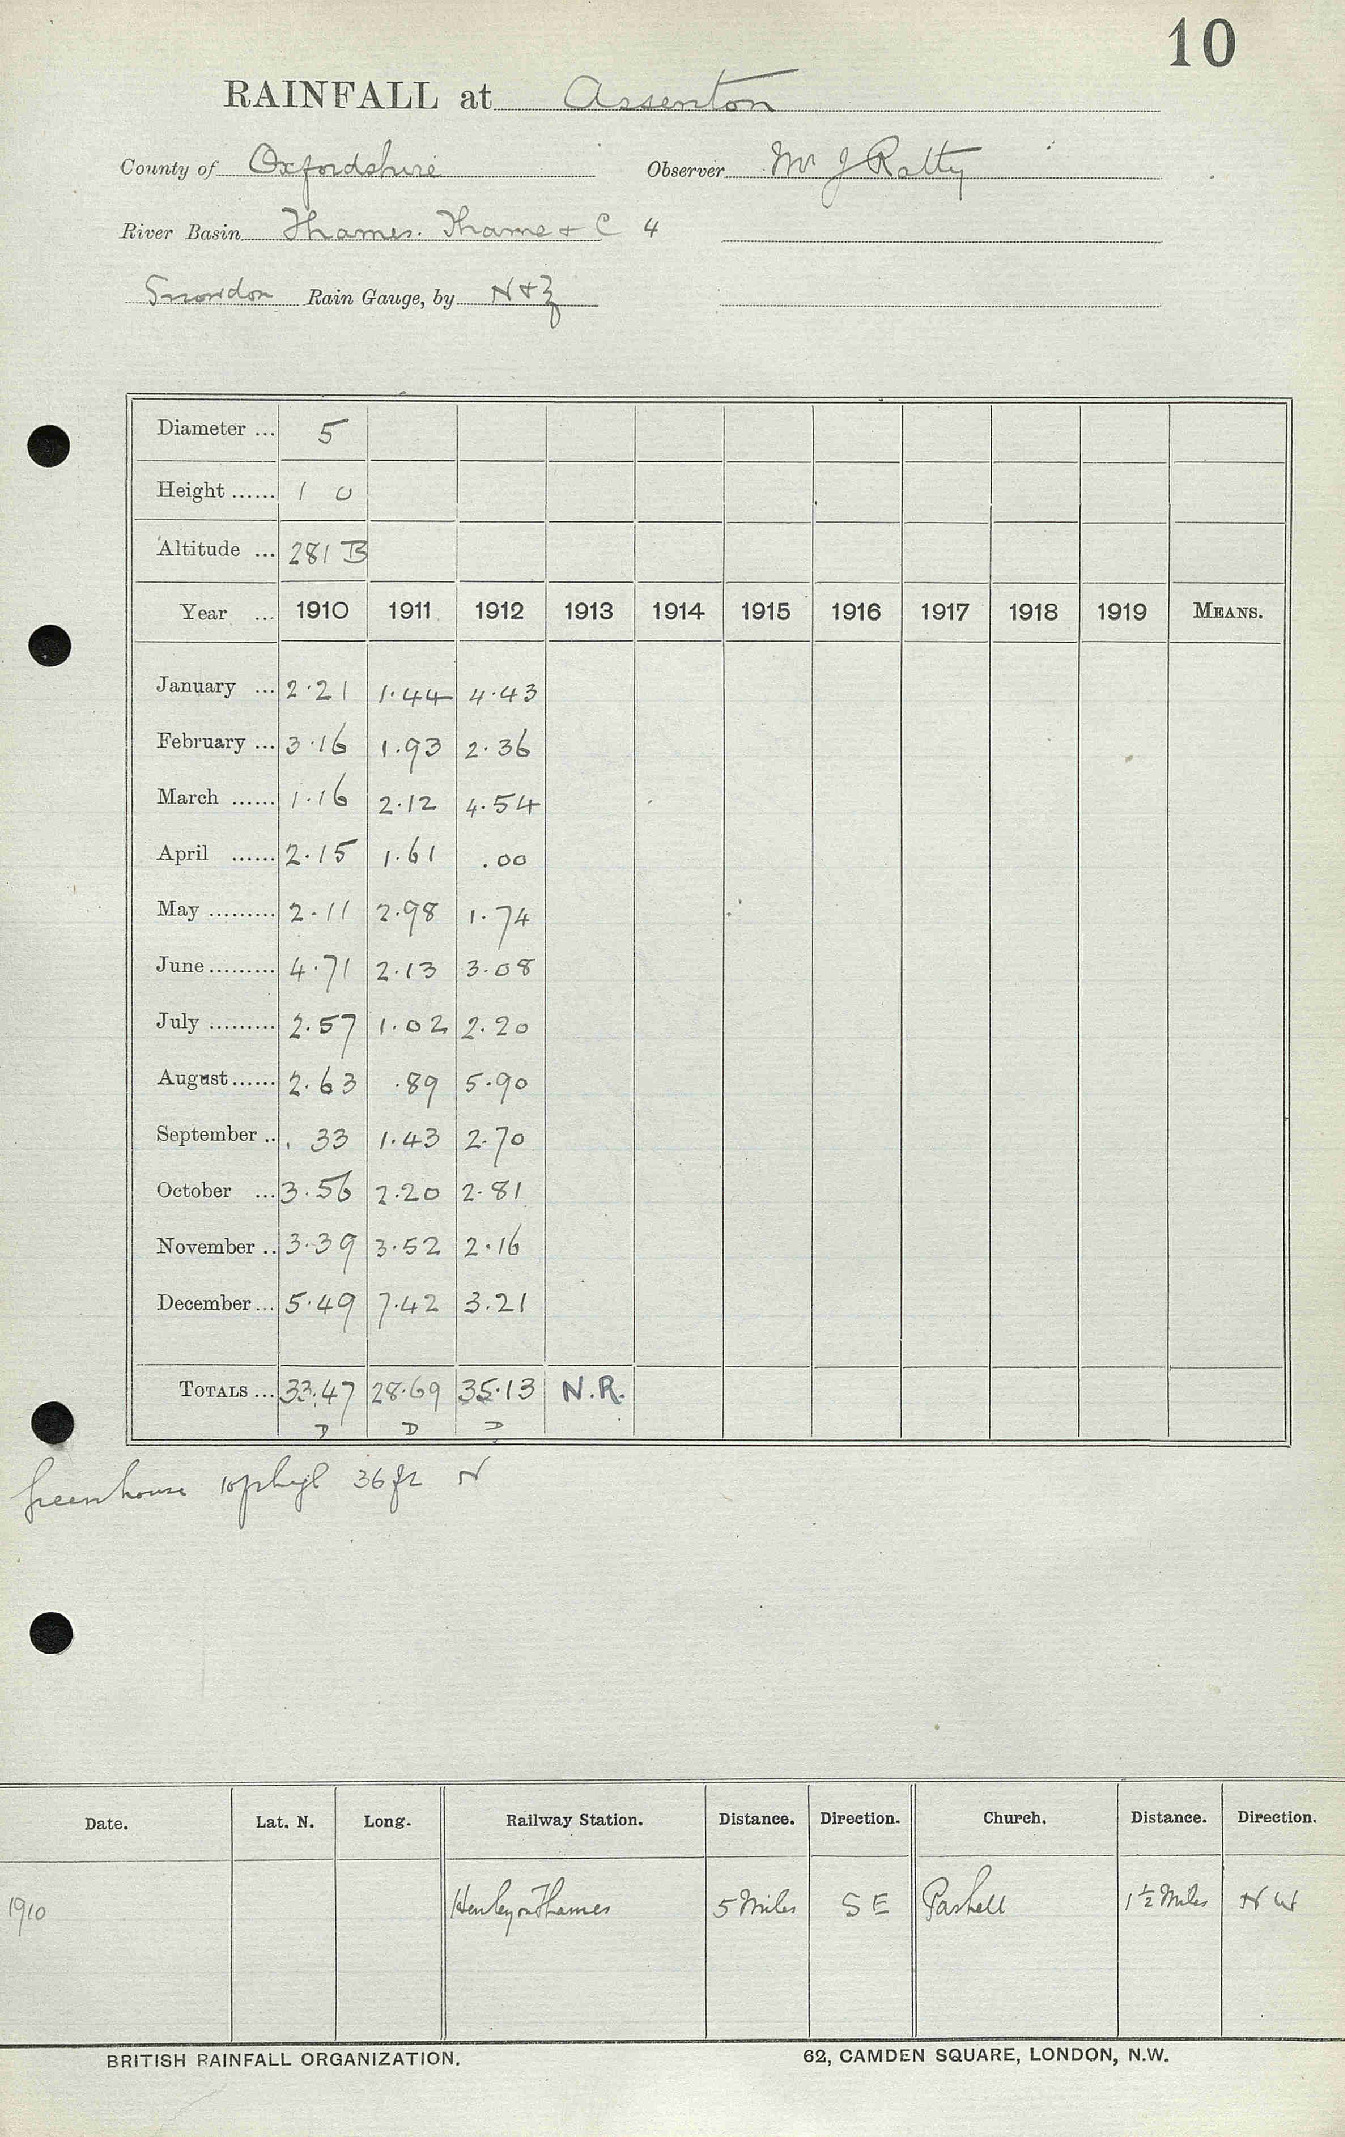 10
RAINFALL at Assenton
County of Oxfordshire Observer Mr J Ratty
River Basin Thames. Thame + C 4
Snowdon Rain Gauge, by N + Z
Diameter ... 5
Height ...... 1 0
Altitude ... 281 B
Year ... 1910 1911 1912 1913 1914 1915 1916 1917 1918 1919 MEANS.
January ... 2.21 1.44 4.43
February ... 3.16 1.93 2.36
March ...... 1.16 2.12 4.54
April ...... 2.15 1.61 .00
May ......... 2.11 2.98 1.74
June ......... 4.71 2.13 3.08
July ......... 2.57 1.02 2.20
August ...... 2.63 .89 5.90
September .. .33 1.43 2.70
October ... 3.56 2.20 2.81
November .. 3.39 3.52 2.16
December ... 5.49 7.42 3.21
TOTALS ... 33.47 28.69 35.13 N.R.
D D D
Greenhouse 36 ft N
Date. Lat. N. Long. Railway Station. Distance. Direction. Church. Distance. Direction.
1910 Henley on Thames 5 Miles S E 1½ Miles N W
BRITISH RAINFALL ORGANIZATION. 62, CAMDEN SQUARE, LONDON, N.W.